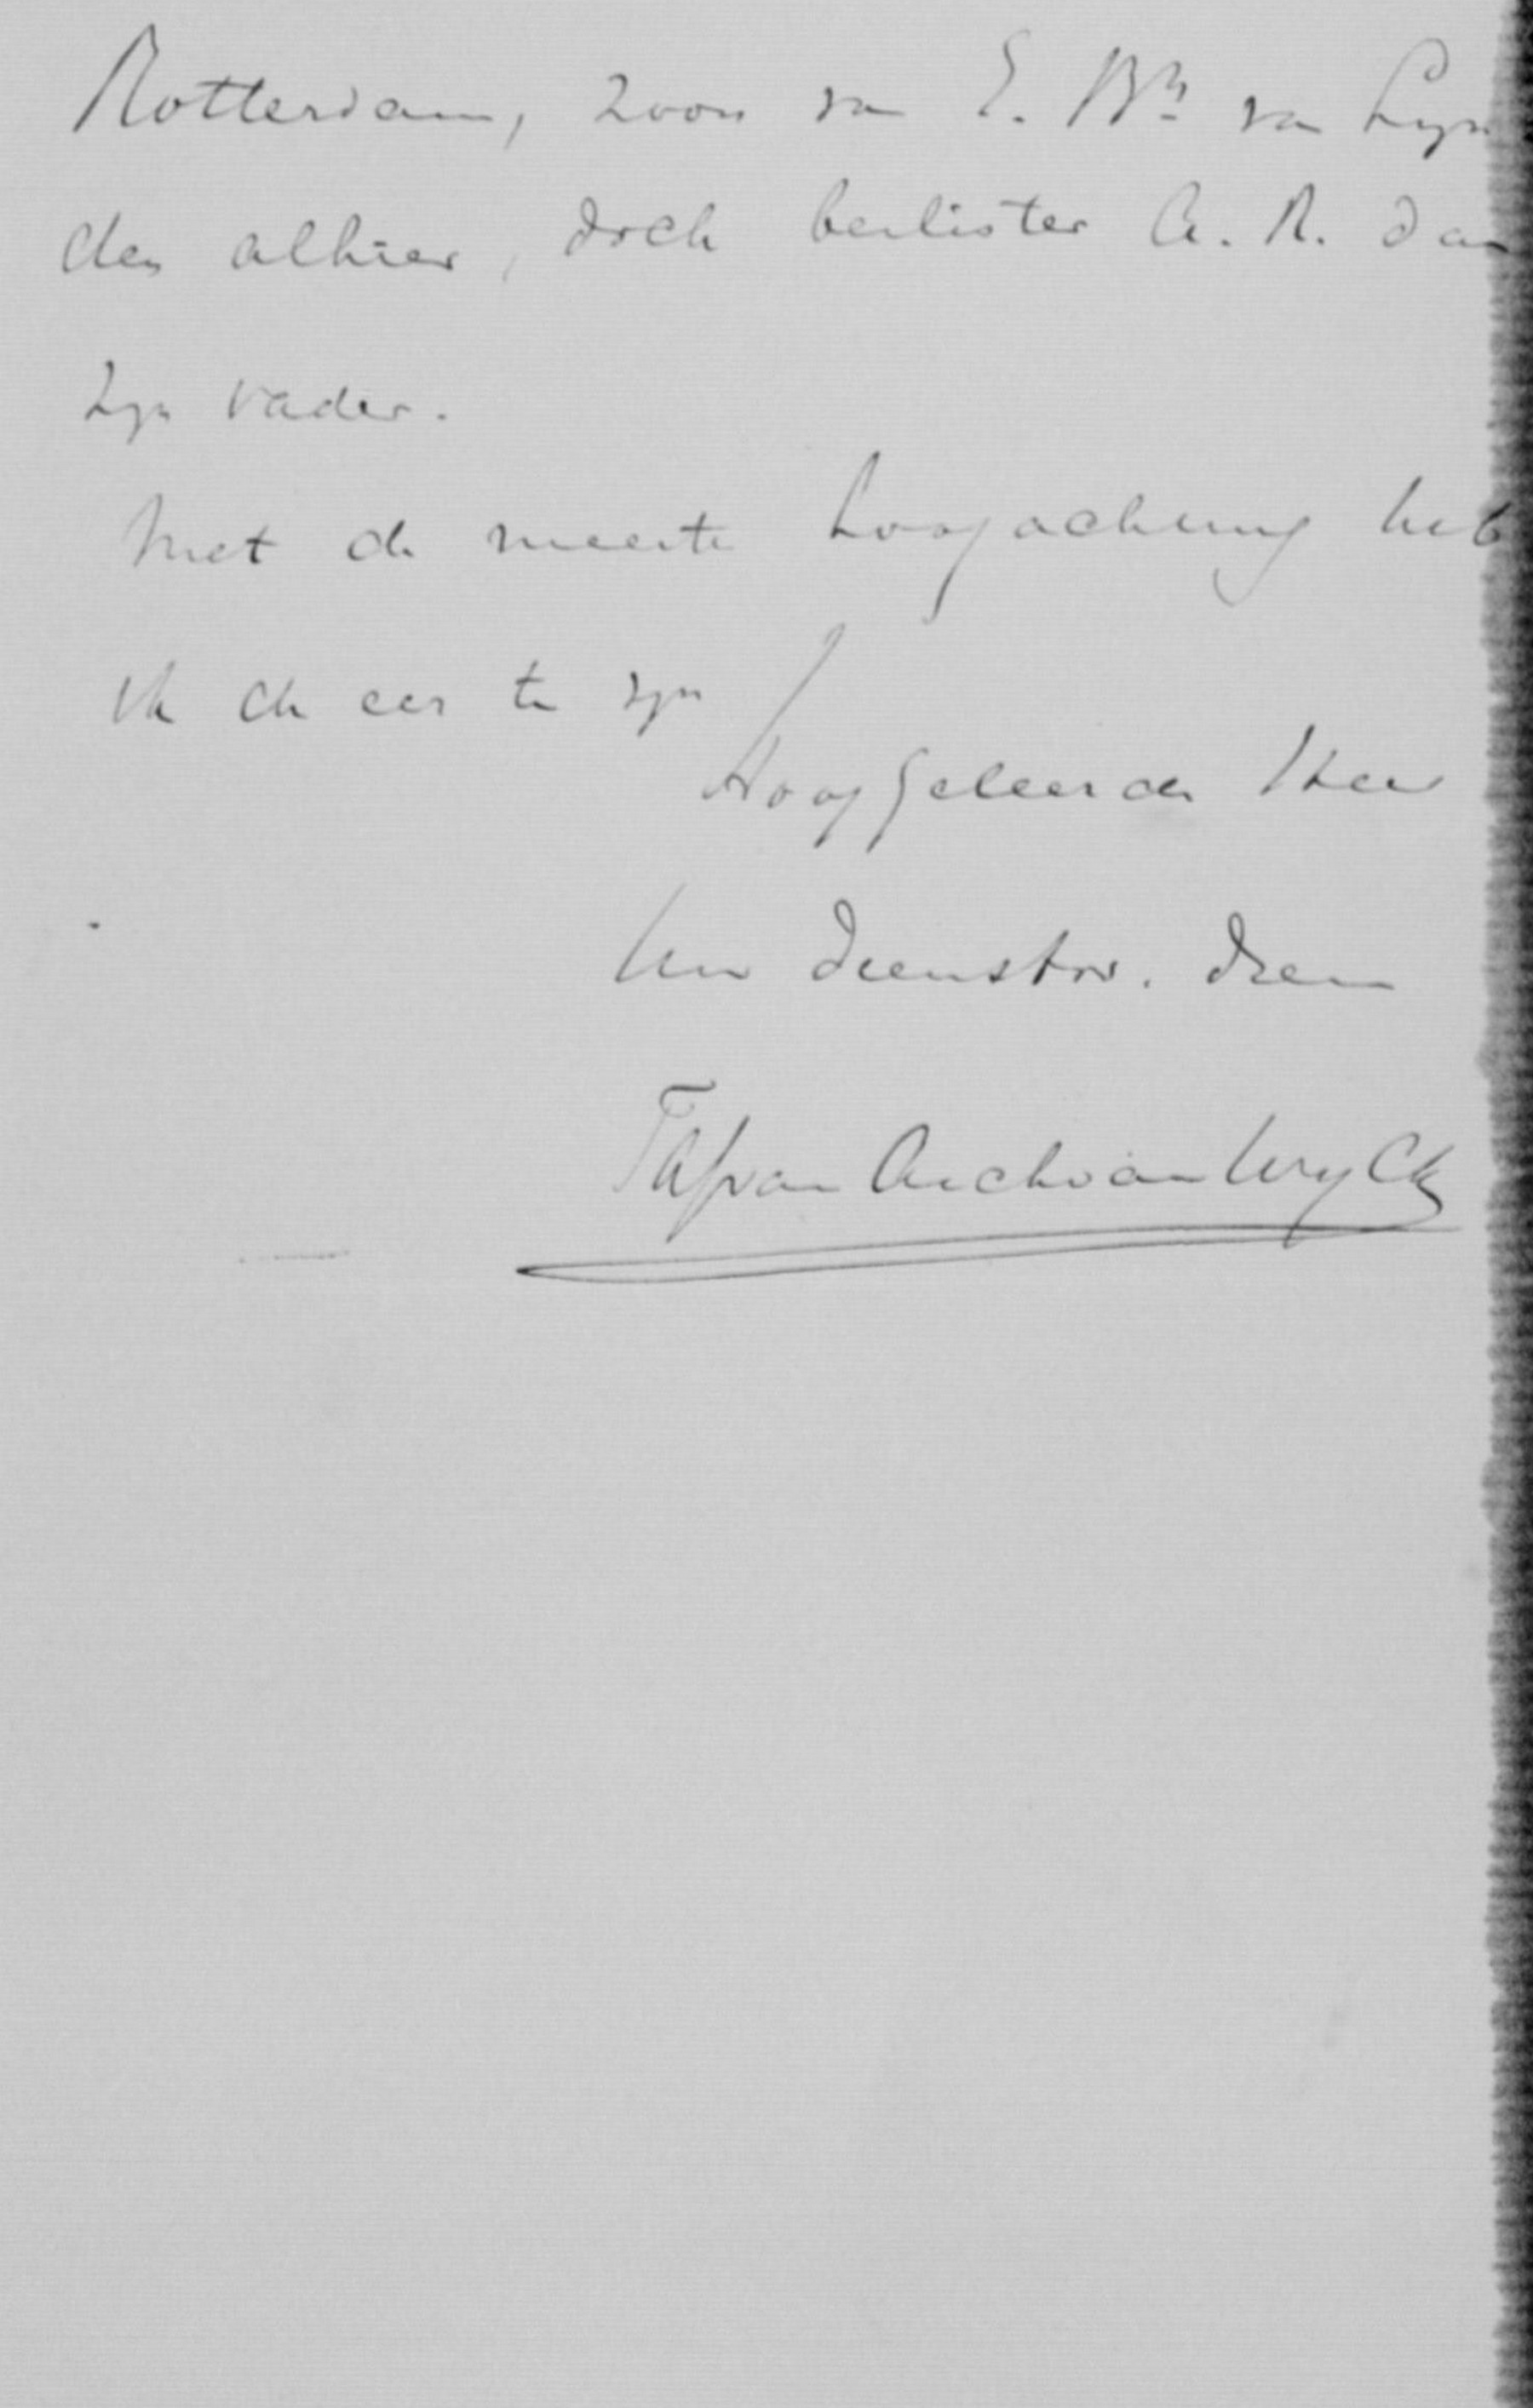 Rotterdam, zoon van E. Bn van Lyn
den alhier, doch beslister A. R. dan
zyn vader.
Met de meeste hoogachting heb
ik de eer te zyn
Hooggeleerde Heer
Uw dienstw. dien
van Asch van Wyck